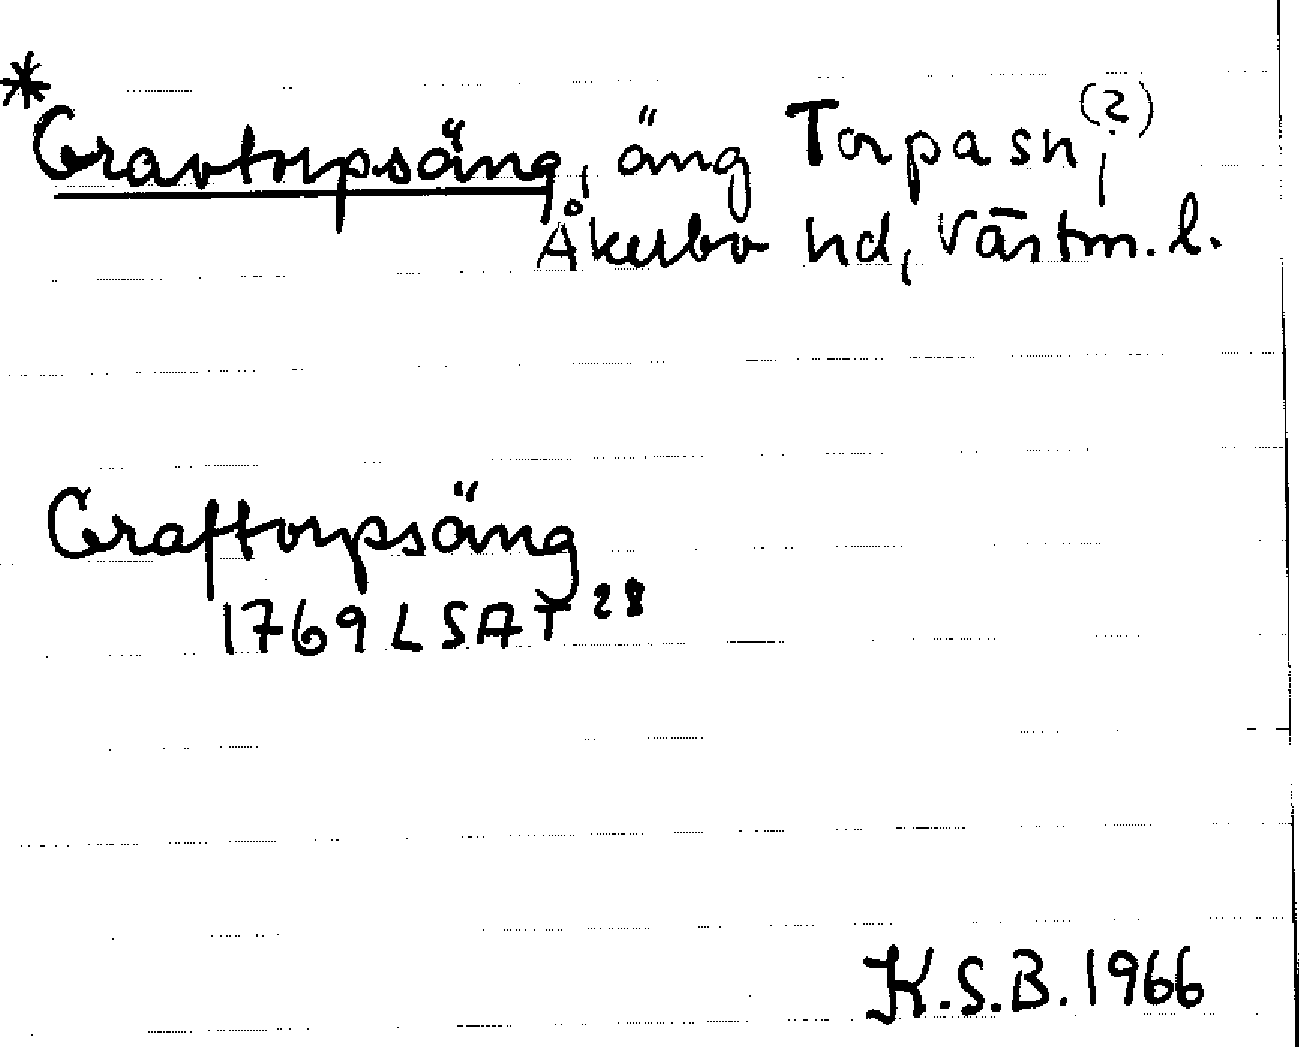 *Gravtorpsäng, äng Torpa sn, (?)
Åkerbo hd, Västm. l.
Graftorpsäng
1769 LSA T 28
K.S.B. 1966